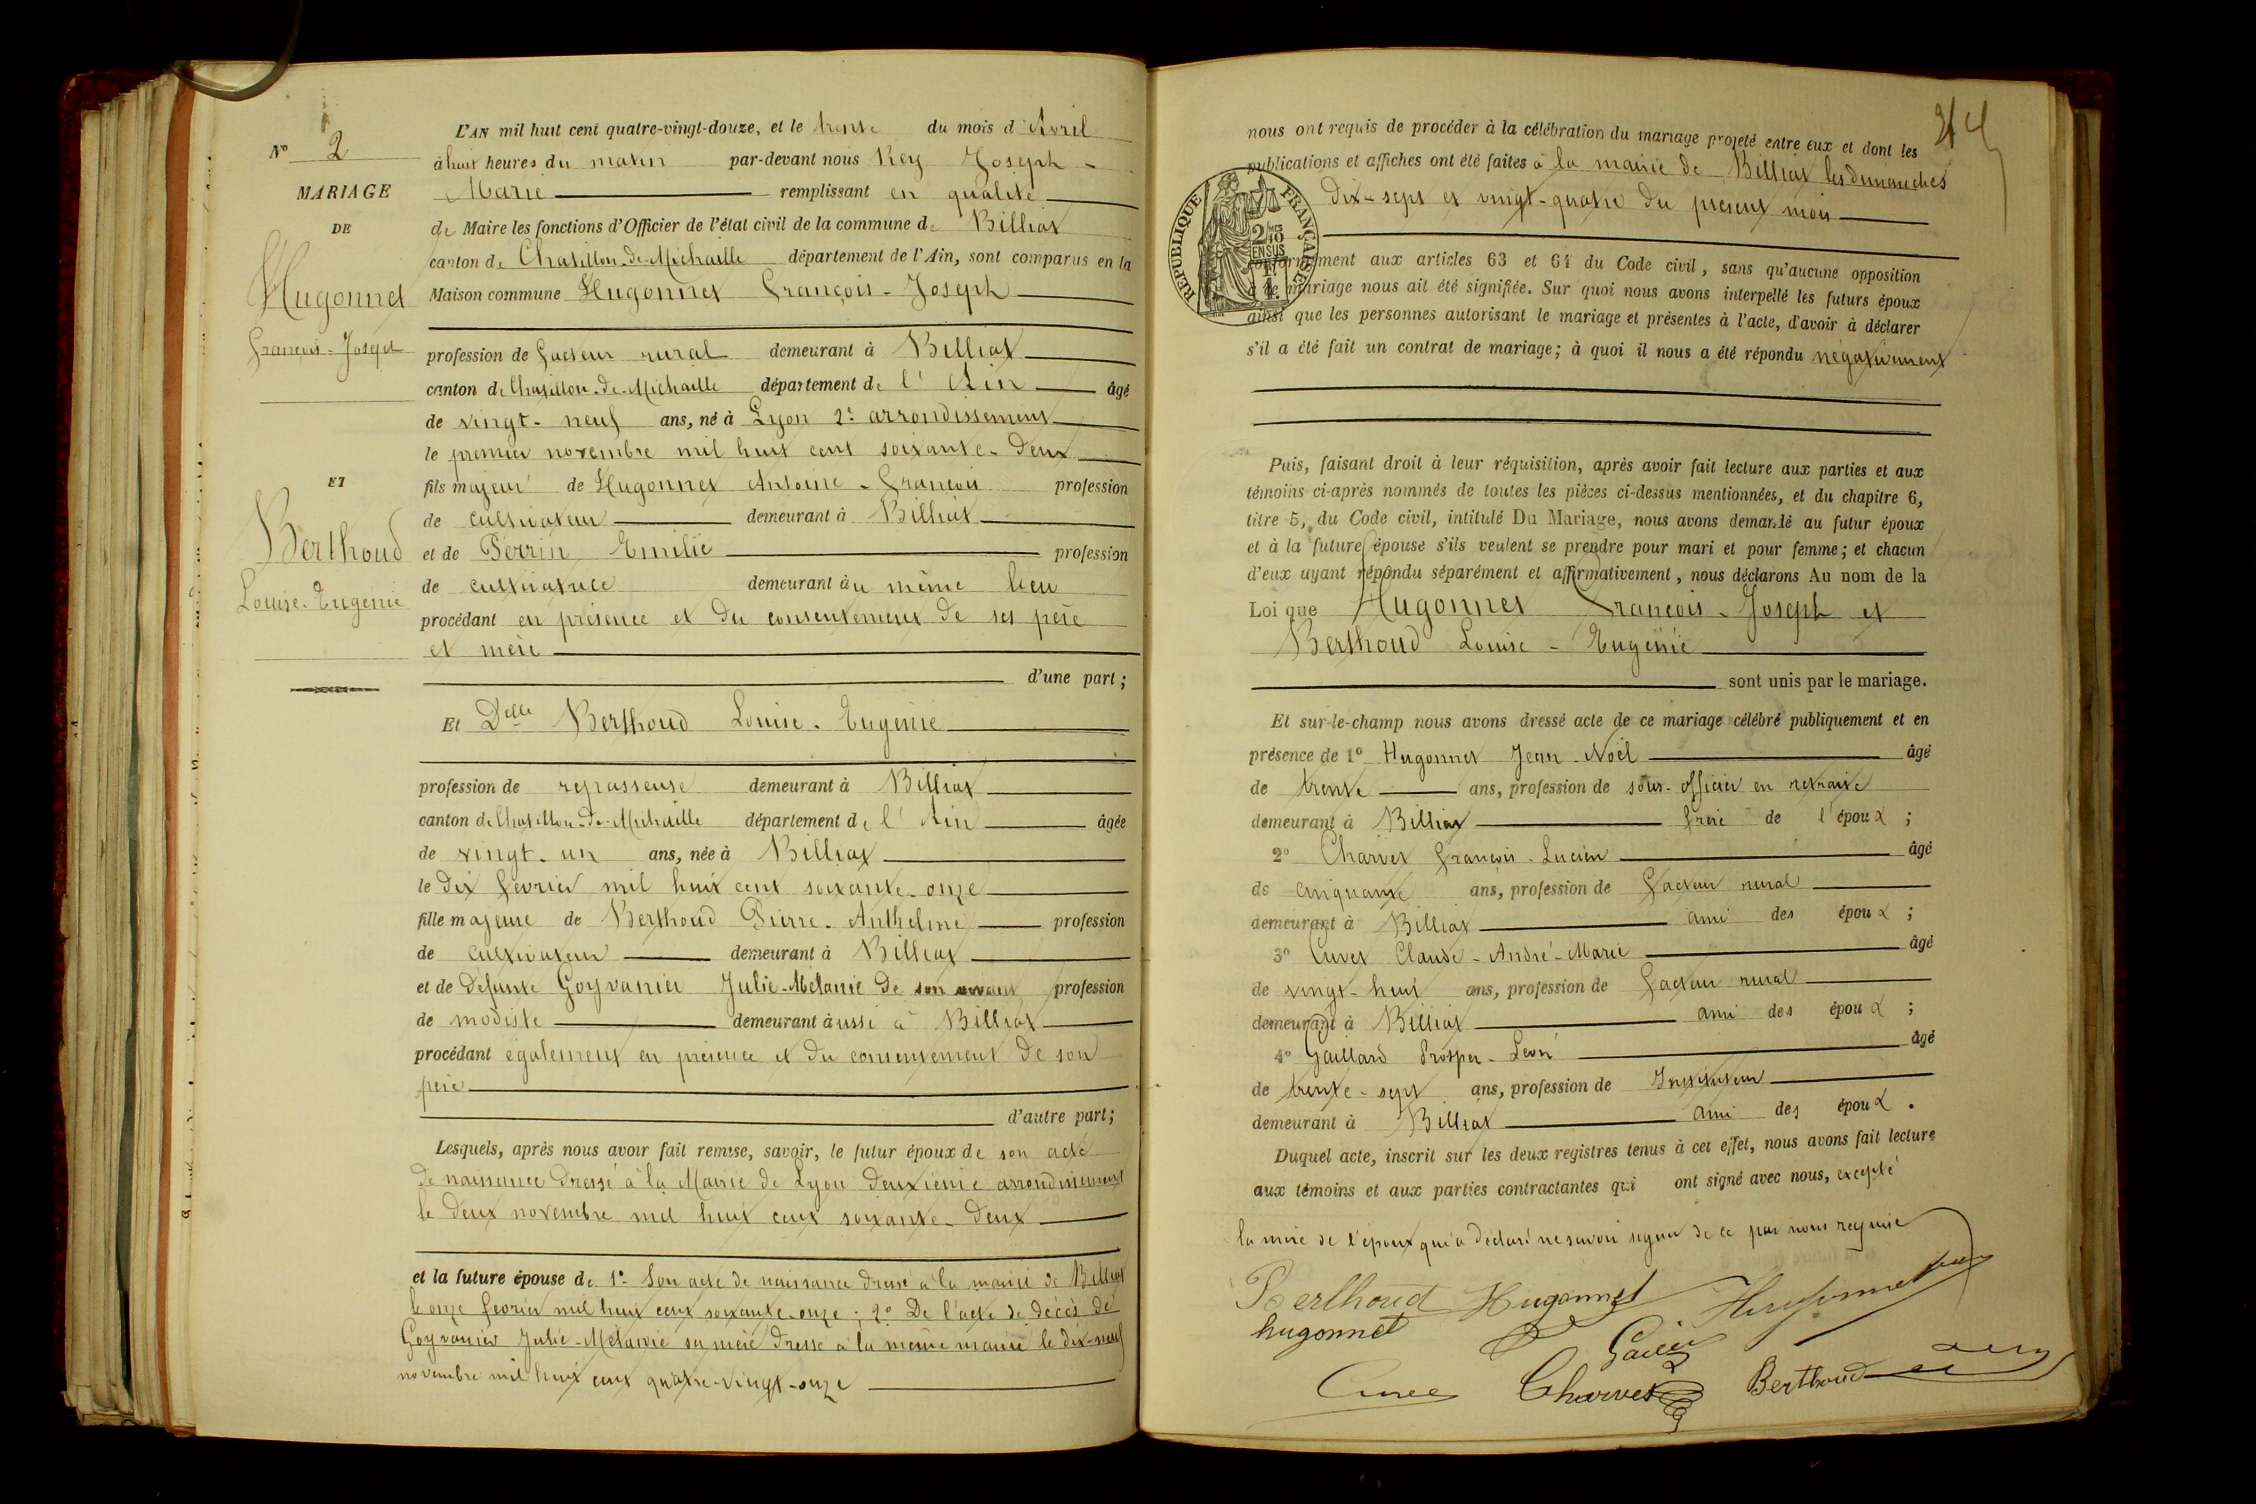 N° 2
MARIAGE
DE
Hugonnet
François-Joseph
ET
Berthoud
Louise-Eugénie
L'AN mil huit cent quatre-vingt-douze, et le trente du mois d'Avril
à huit heures du matin par-devant nous Rey Joseph-
Marie remplissant en qualité
de Maire les fonctions d'Officier de l'état civil de la commune de Billiat
canton de Chatillon-de-Michaille département de l'Ain, sont comparus en la
Maison commune Hugonnet François-Joseph
profession de facteur rural demeurant à Billiat
canton de Chatillon-de-Michaille département de l'Ain âgé
de vingt-neuf ans, né à Lyon 2e arrondissement
le premier novembre mil huit cent soixante-deux
fils majeur de Hugonnet Antoine-François profession
de cultivateur demeurant à Billiat
et de Perrin Emilie profession
de cultivatrice demeurant au même lieu
procédant en présence et du consentement de ses père
et mère
d'une part;
Et Delle Berthoud Louise-Eugénie
profession de repasseuse demeurant à Billiat
canton de Chatillon-de-Michaille département de l'Ain âgée
de vingt-un ans, née à Billiat
le dix février mil huit cent soixante-onze
fille majeure de Berthoud Pierre-Anthelme profession
de cultivateur demeurant à Billiat
et de défunte Goyvanier Julie-Mélanie de son vivant profession
de modiste demeurant aussi à Billiat
procédant également en présence et du consentement de son
père
d'autre part;
Lesquels, après nous avoir fait remise, savoir, le futur époux de son acte
de naissance dressé à la Mairie de Lyon deuxième arrondissement
le deux novembre mil huit cent soixante-deux
et la future épouse de 1° Son acte de naissance dressé à la mairie de Billiat
le onze février mil huit cent soixante-onze; 2° De l'acte de décès de
Goyvanier Julie-Mélanie sa mère dressé à la même mairie le dix-neuf
novembre mil huit cent quatre-vingt-onze
nous ont requis de procéder à la célébration du mariage projeté entre eux et dont les
publications et affiches ont été faites à la mairie de Billiat les dimanches
dix-sept et vingt-quatre du présent mois
RÉPUBLIQUE FRANÇAISE
conformément aux articles 63 et 64 du Code civil, sans qu'aucune opposition
à ce mariage nous ait été signifiée. Sur quoi nous avons interpellé les futurs époux
ainsi que les personnes autorisant le mariage et présentes à l'acte, d'avoir à déclarer
s'il a été fait un contrat de mariage; à quoi il nous a été répondu négativement
Puis, faisant droit à leur réquisition, après avoir fait lecture aux parties et aux
témoins ci-après nommés de toutes les pièces ci-dessus mentionnées, et du chapitre 6,
titre 5, du Code civil, intitulé Du Mariage, nous avons demandé au futur époux
et à la future épouse s'ils veulent se prendre pour mari et pour femme; et chacun
d'eux ayant répondu séparément et affirmativement, nous déclarons Au nom de la
Loi que Hugonnet François-Joseph et
Berthoud Louise-Eugénie
sont unis par le mariage.
Et sur-le-champ nous avons dressé acte de ce mariage célébré publiquement et en
présence de 1° Hugonnet Jean-Noël âgé
de trente ans, profession de sous-officier en retraite
demeurant à Billiat frère de l'époux;
2° Charvet François-Lucien âgé
de cinquante ans, profession de facteur rural
demeurant à Billiat ami des époux;
3° Cuvet Claude-André-Marie âgé
de vingt-huit ans, profession de facteur rural
demeurant à Billiat ami des époux;
4° Gaillard Prosper-Léon âgé
de trente-sept ans, profession de Instituteur
demeurant à Billiat ami des époux.
Duquel acte, inscrit sur les deux registres tenus à cet effet, nous avons fait lecture
aux témoins et aux parties contractantes qui ont signé avec nous, excepté
la mère de l'époux qui a déclaré ne savoir signer de ce par nous requise
Berthoud Hugonnet Hugonnet
hugonnet
Charvet Berthoud